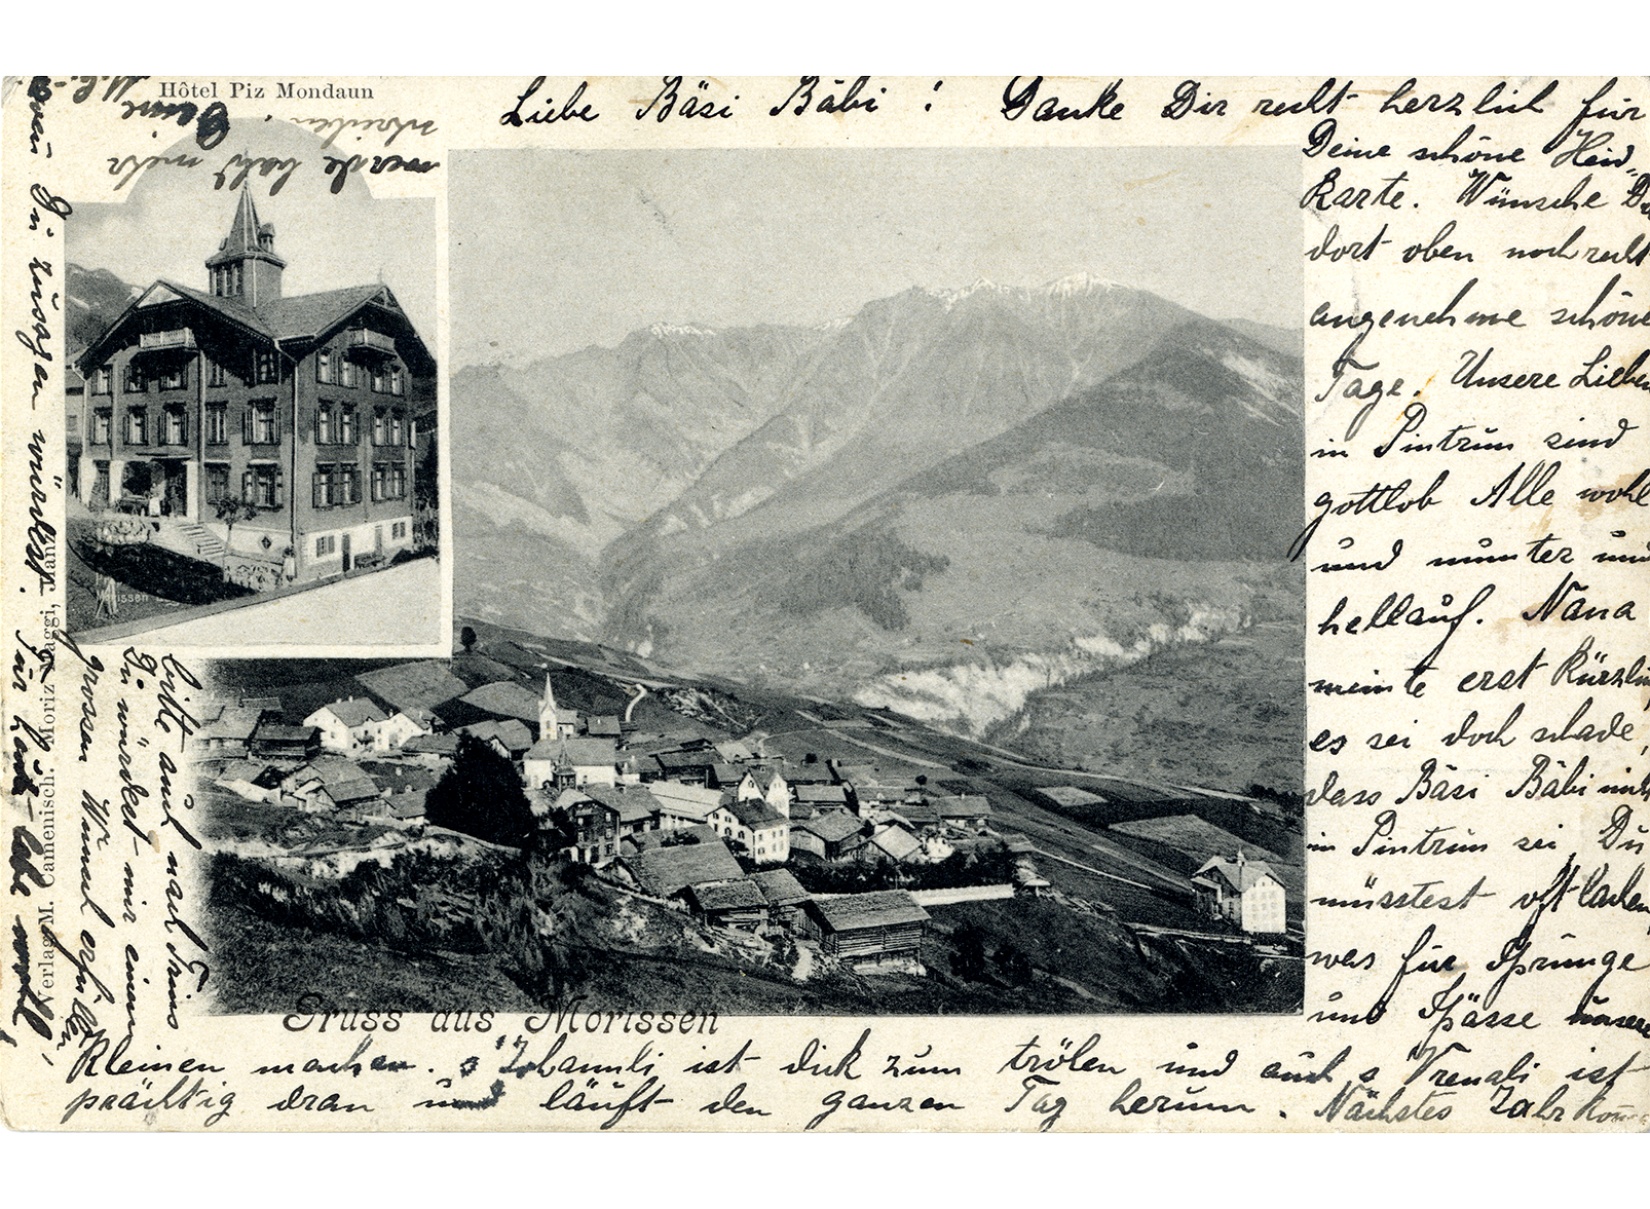 Hôtel Piz Mondaun
Liebe Bäsi Bäbi ! Danke Dir recht herzlich für
Deine schöne Heid-
karte. Wünsche Dir
dort oben noch recht
angenehme schöne
Tage. Unsere Lieben
in Pintrun sind
gottlob Alle wohl
und munter und
hellauf. Nana
meinte erst kürzlich
es sei doch schade,
dass Bäsi Bäbi nicht
in Pintrun sei Du
müsstest oft lachen
was für Sprünge
und Spässe unsere
Kleinen machen. s'Johannli ist dick zum trölen und auch s Vrenali ist
prächtig dran und läuft den ganzen Tag herum. Nächstes Jahr
bitte auch nach Trins
Du würdest mir einen
grossen Wunsch erfüllen
wen Du zusagen würdest.
Für heute lebe wohl,
werde bald mehr
schreiben!
Deine
Gruss aus Morissen
Morissen
Verlag M. Camenisch. Moriz Maggi, Ilanz